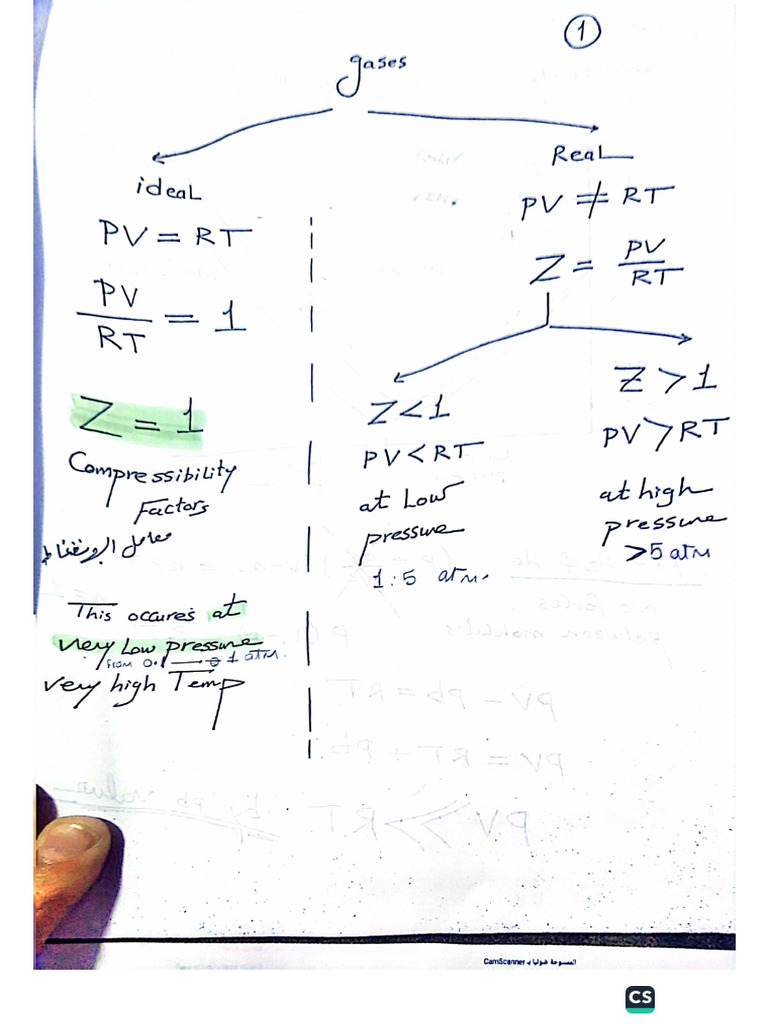 1
gases
ideal
Real
PV = RT
PV ≠ RT
PV/RT = 1
Z = PV/RT
Z = 1
Z < 1
Z > 1
PV < RT
PV > RT
Compressibility
Factors
معامل
at Low
pressure
1:5 atm.
at high
pressure
>5 atm
This occures at
very Low pressure
From 0.1 → 1 atm.
very high Temp
CamScanner الممسوحة ضوئيا بـ
CS